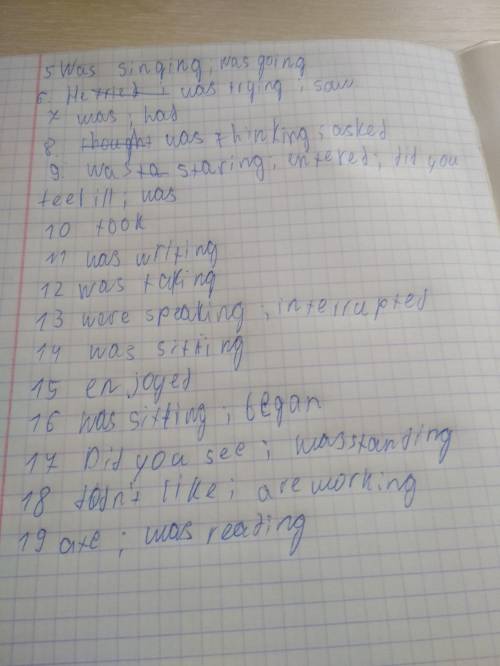 5 Was singing; was going
6. He tried ; was trying; saw
7 was; had
8. thought was thinking; asked
9. was sta staring; entered; did you
feel ill; was
10 took
11 was writing
12 was taking
13 were speaking; interrupted
14 was sitting
15 enjoyed
16 was sitting; began
17 Did you see; was standing
18 didn't like; are working
19 ate; was reading